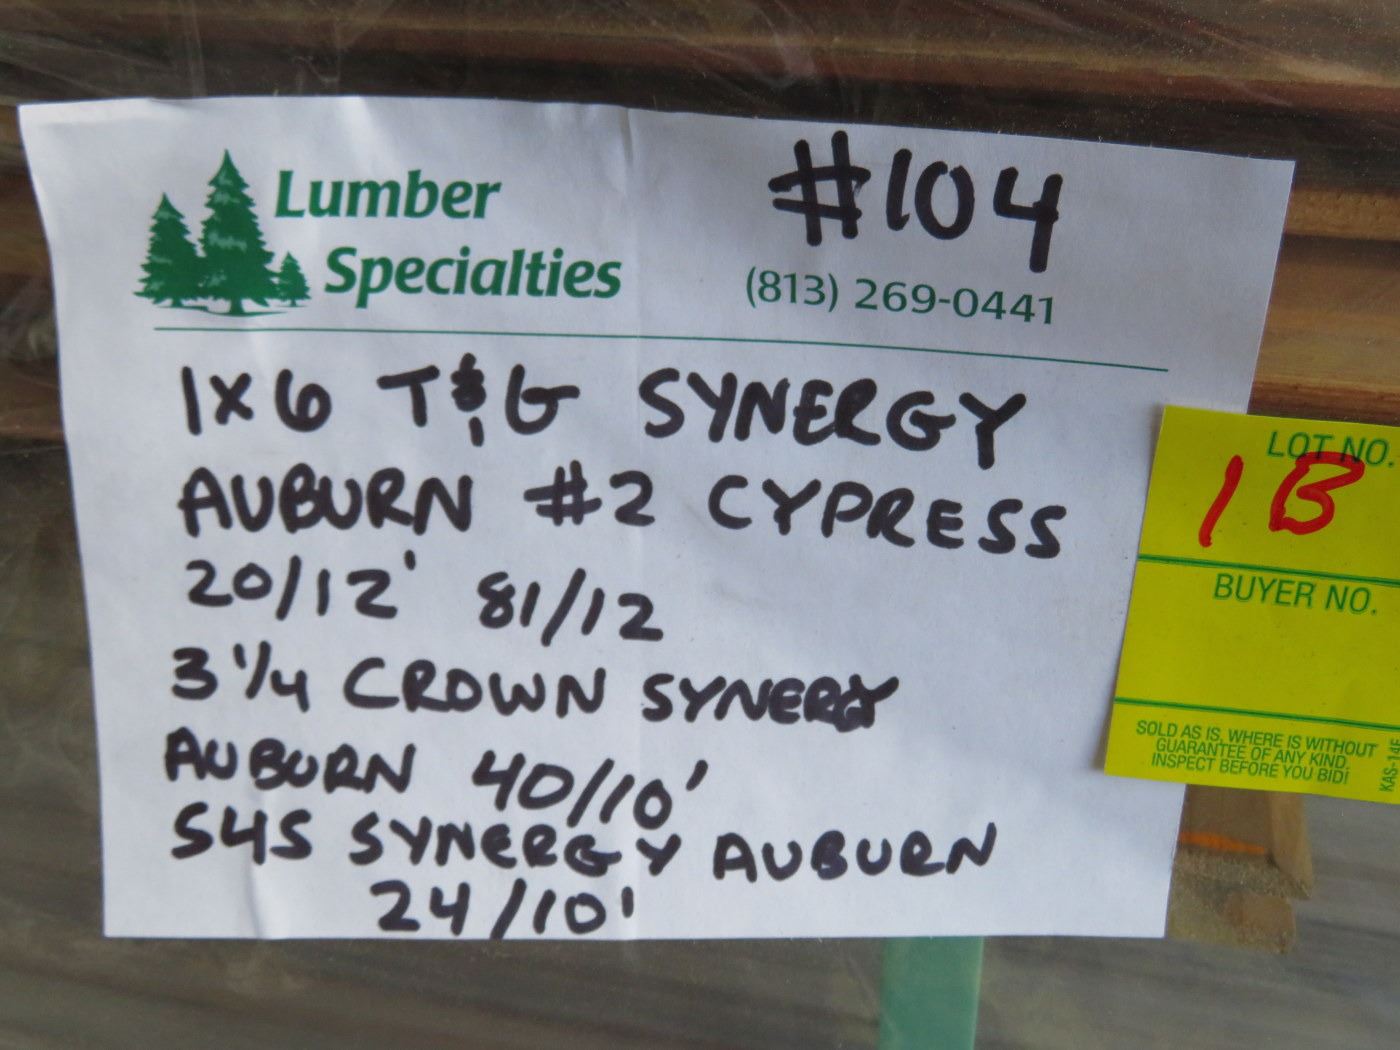 Lumber
Specialties
#104
(813) 269-0441
1X6 T&G SYNERGY
AUBURN #2 CYPRESS
20/12' 81/12
3 1/4 CROWN SYNERGY
AUBURN 40/10'
S4S SYNERGY AUBURN
24/10'
LOT NO.
1B
BUYER NO.
SOLD AS IS, WHERE IS WITHOUT
GUARANTEE OF ANY KIND.
INSPECT BEFORE YOU BID!